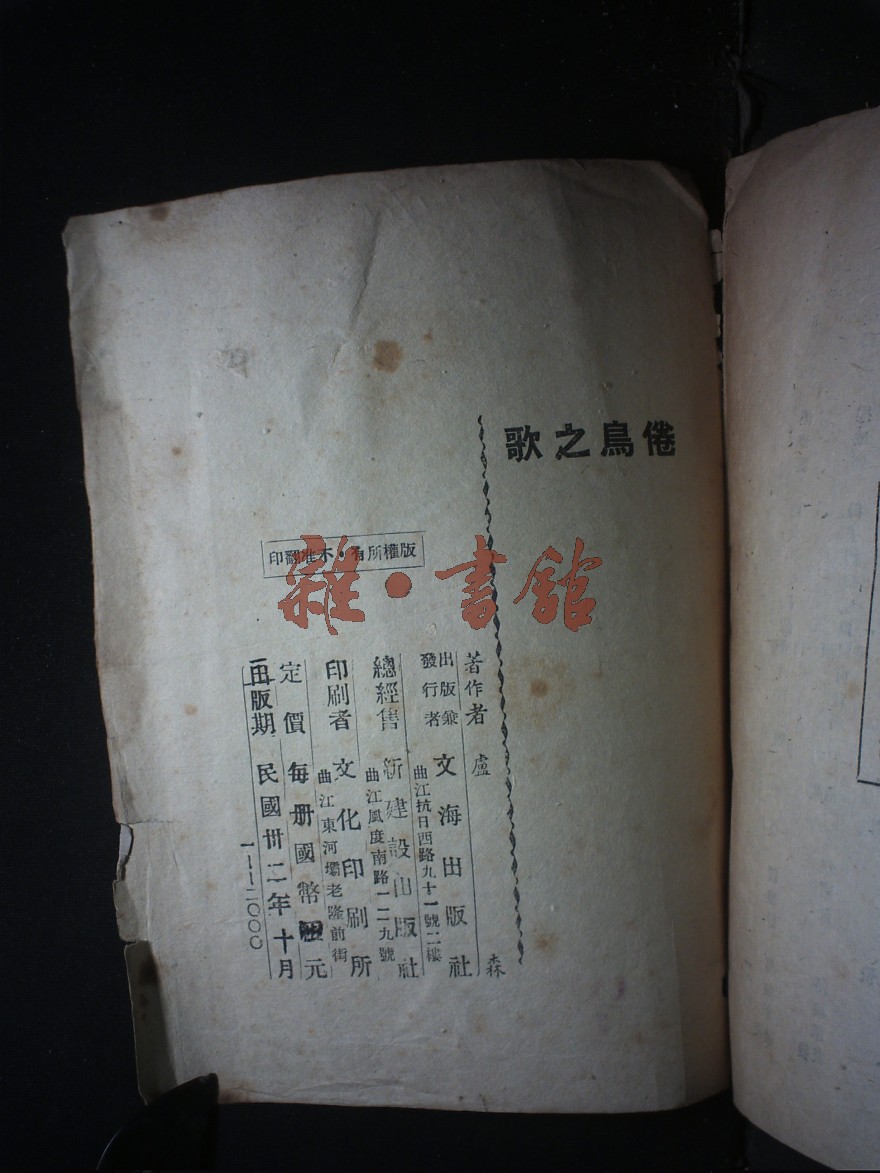 倦鳥之歌
版權所有・不准翻印
雜・書館
著作者 盧 森
出版兼
發行者 文海出版社
曲江抗日西路九十一號二樓
總經售 新建設出版社
曲江風度南路一二九號
印刷者 文化印刷所
曲江東河壩老隆前街
定價 每册國幣 元
出版期 民國卅二年十月
一——二〇〇〇